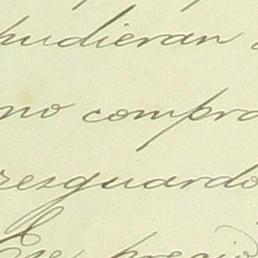 pudieran
no compra
resguardo
Ese precio